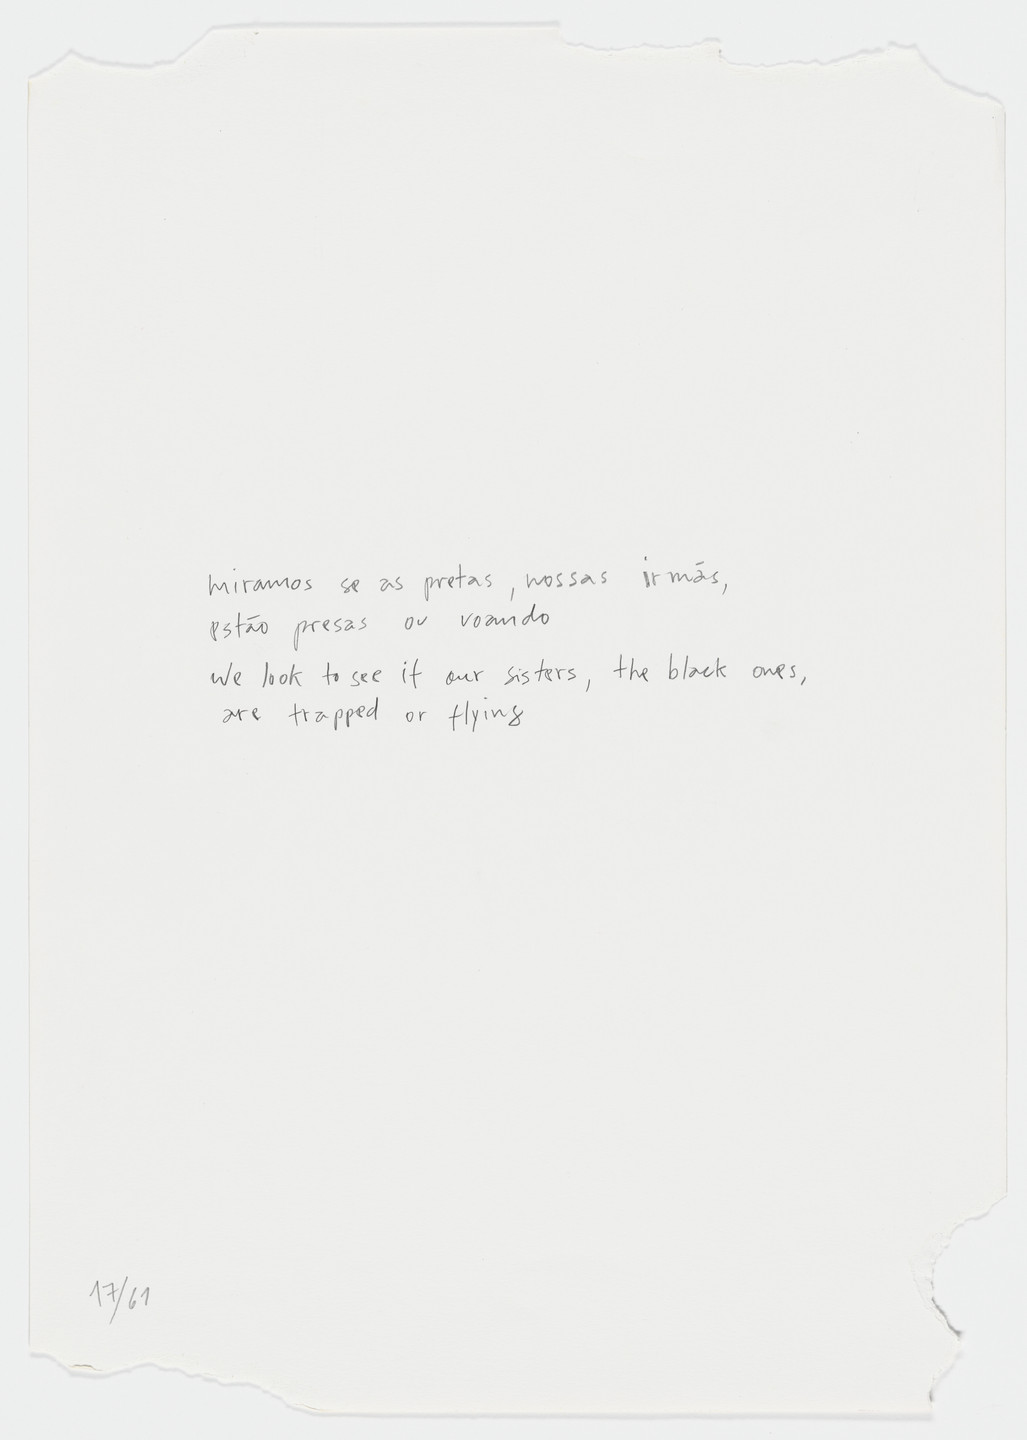 miramos se as pretas, nossas irmãs,
estão presas ou voando
we look to see if our sisters, the black ones,
are trapped or flying
17/61